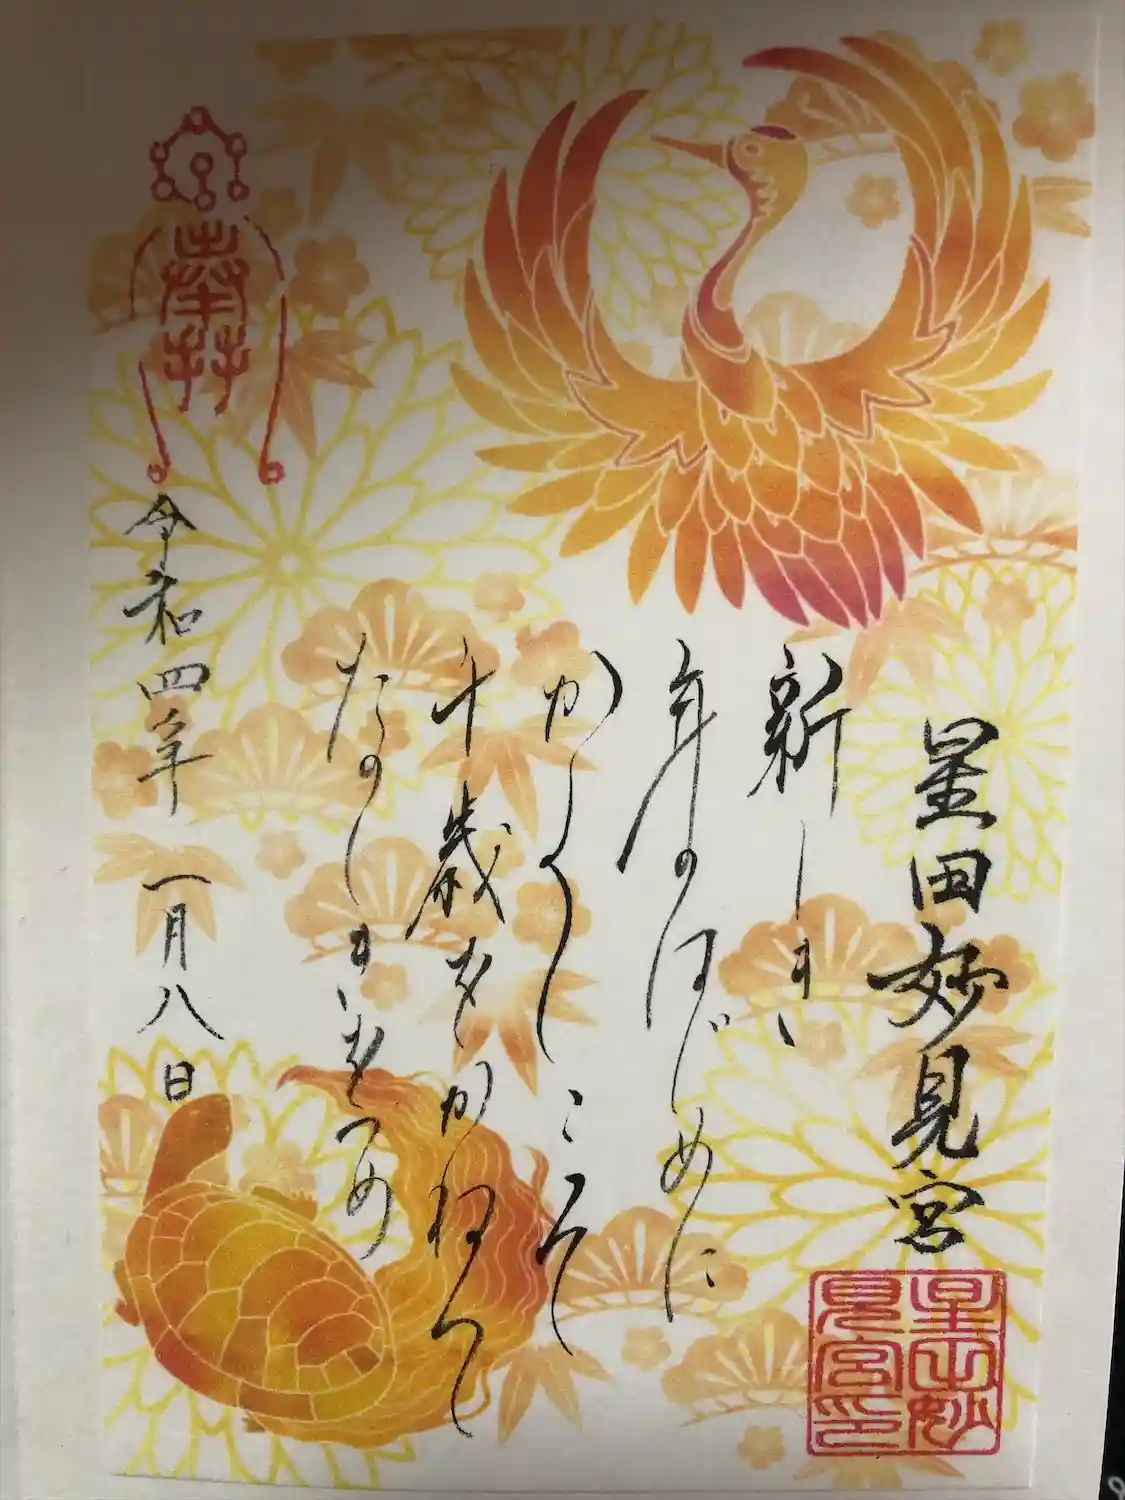 星田妙見宮
星田妙
見宮印
新しき
年のはじめに
かくしこそ
千歳をかねて
たのしきをつめ
奉拝
令和四年 一月八日